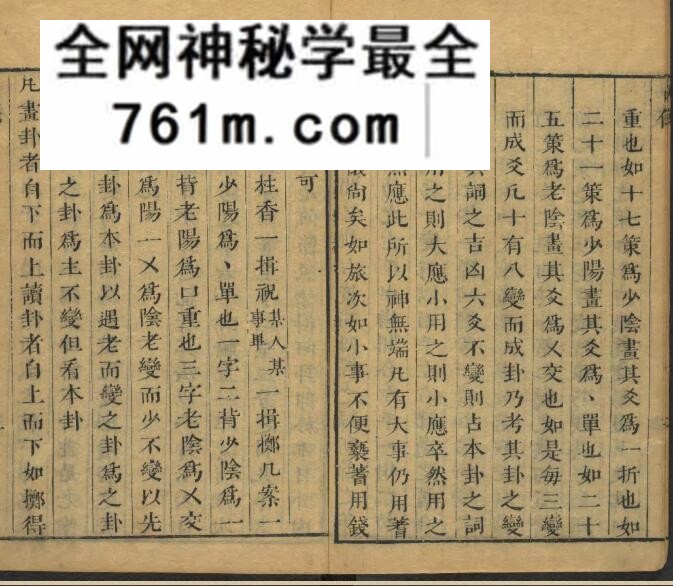 全网神秘学最全
761m.com
重也如十七策為少陰畫其爻為一折也如
二十一策為少陽畫其爻為、單也如二十
五策為老陰畫其爻為乂交也如是每三變
而成爻凡十有八變而成卦乃考其卦之變
詞之吉凶六爻不變則占本卦之詞
用之則大應小用之則小應卒然用之
無應此所以神無端凡有大事仍用蓍
尚矣如旅次如小事不便褻蓍用錢
可
炷香一揖祝某人某事畢一揖擲几案一
少陽為、單也一字二背少陰為一
背老陽為口重也三字老陰為乂交
為陽一乂為陰老變而少不變以先
卦為本卦以遇老而變之卦為之卦
之卦為主不變但看本卦
凡畫卦者自下而上讀卦者自上而下如擲得